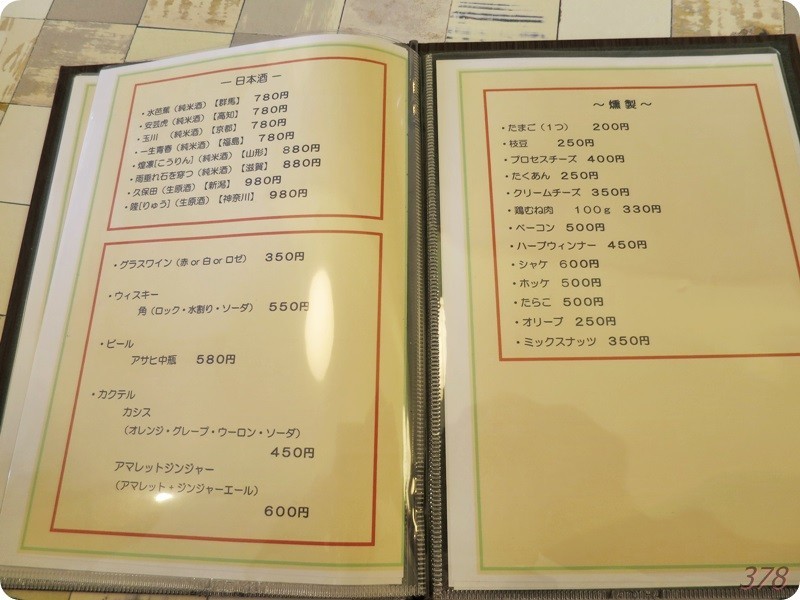 ― 日本酒 ―
・水芭蕉(純米酒)【群馬】 780円
・安芸虎(純米酒)【高知】 780円
・玉川 (純米酒)【京都】 780円
・一生青春(純米酒)【福島】 780円
・煌凛[こうりん](純米酒)【山形】 880円
・雨垂れ石を穿つ(純米酒)【滋賀】 880円
・久保田(生原酒)【新潟】 980円
・隆[りゅう](生原酒)【神奈川】 980円
・グラスワイン(赤 or 白 or ロゼ) 350円
・ウィスキー
角(ロック・水割り・ソーダ) 550円
・ビール
アサヒ中瓶 580円
・カクテル
カシス
(オレンジ・グレープ・ウーロン・ソーダ)
450円
アマレットジンジャー
(アマレット + ジンジャーエール)
600円
~ 燻製 ~
・たまご(1つ) 200円
・枝豆 250円
・プロセスチーズ 400円
・たくあん 250円
・クリームチーズ 350円
・鶏むね肉 100g 330円
・ベーコン 500円
・ハーブウィンナー 450円
・シャケ 600円
・ホッケ 500円
・たらこ 500円
・オリーブ 250円
・ミックスナッツ 350円
378